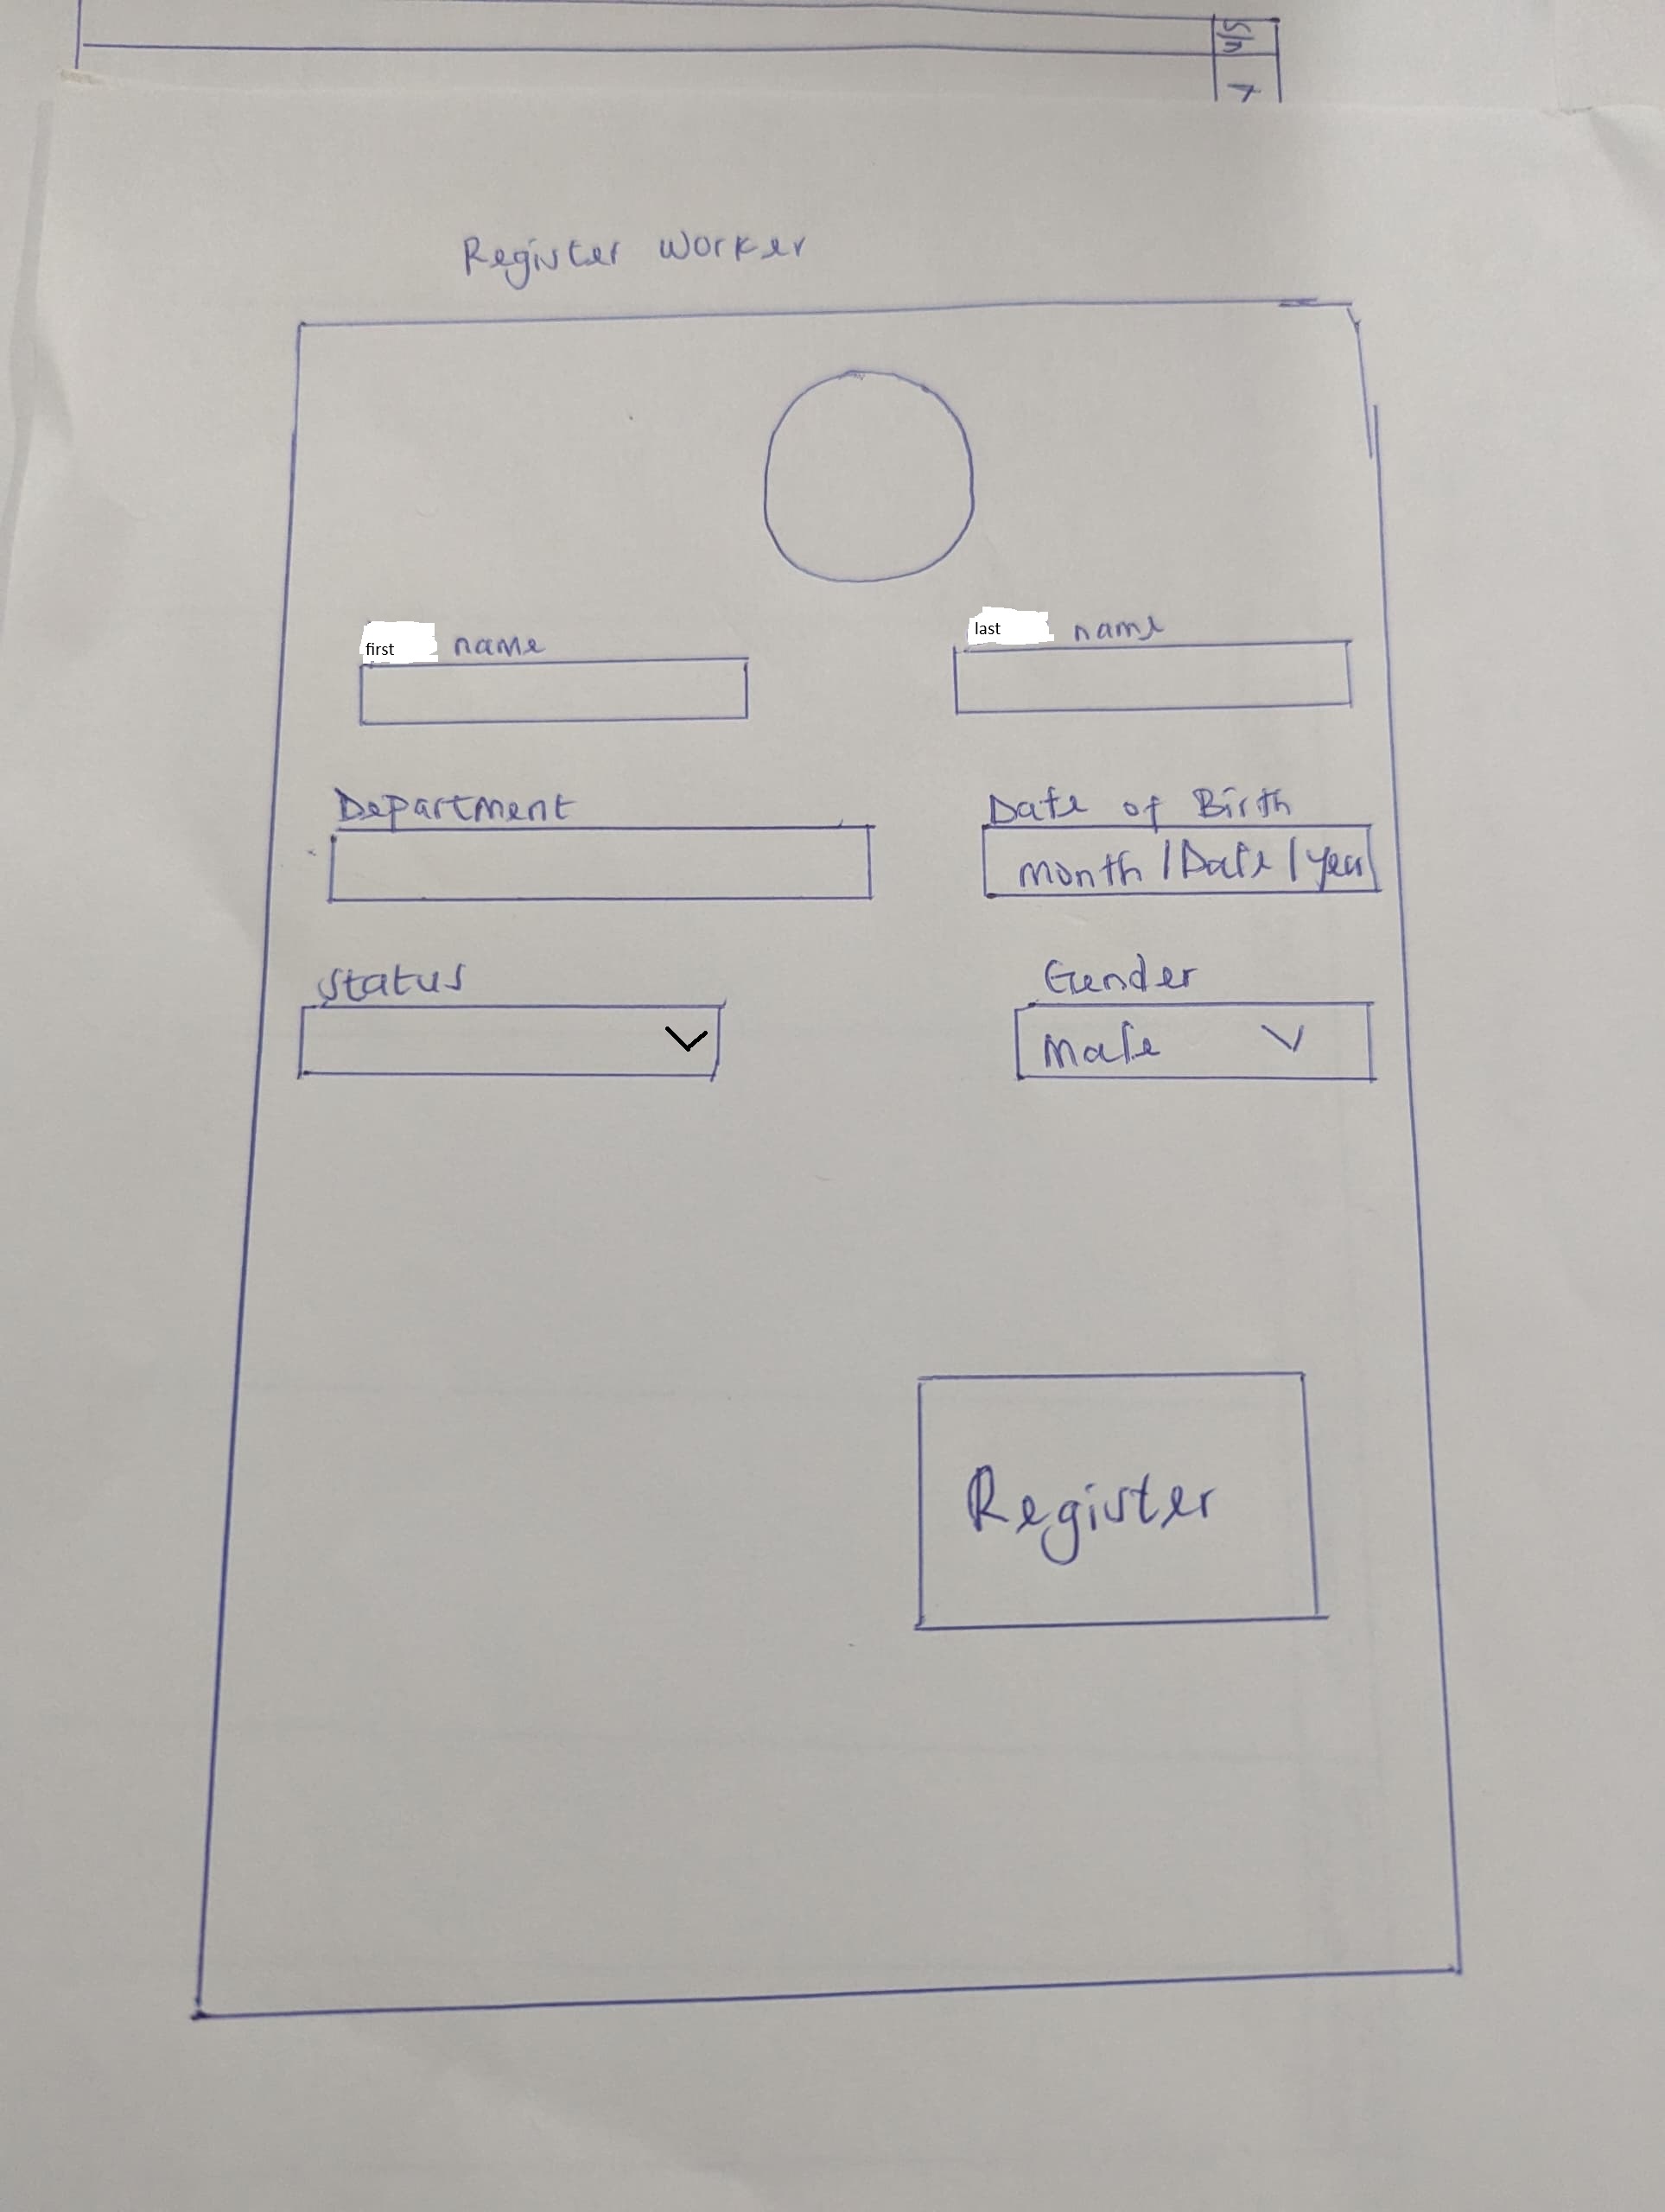 S/n
Register Worker
first name
last name
Department
Date of Birth
month / Date / year
Status
Gender
Male
Register